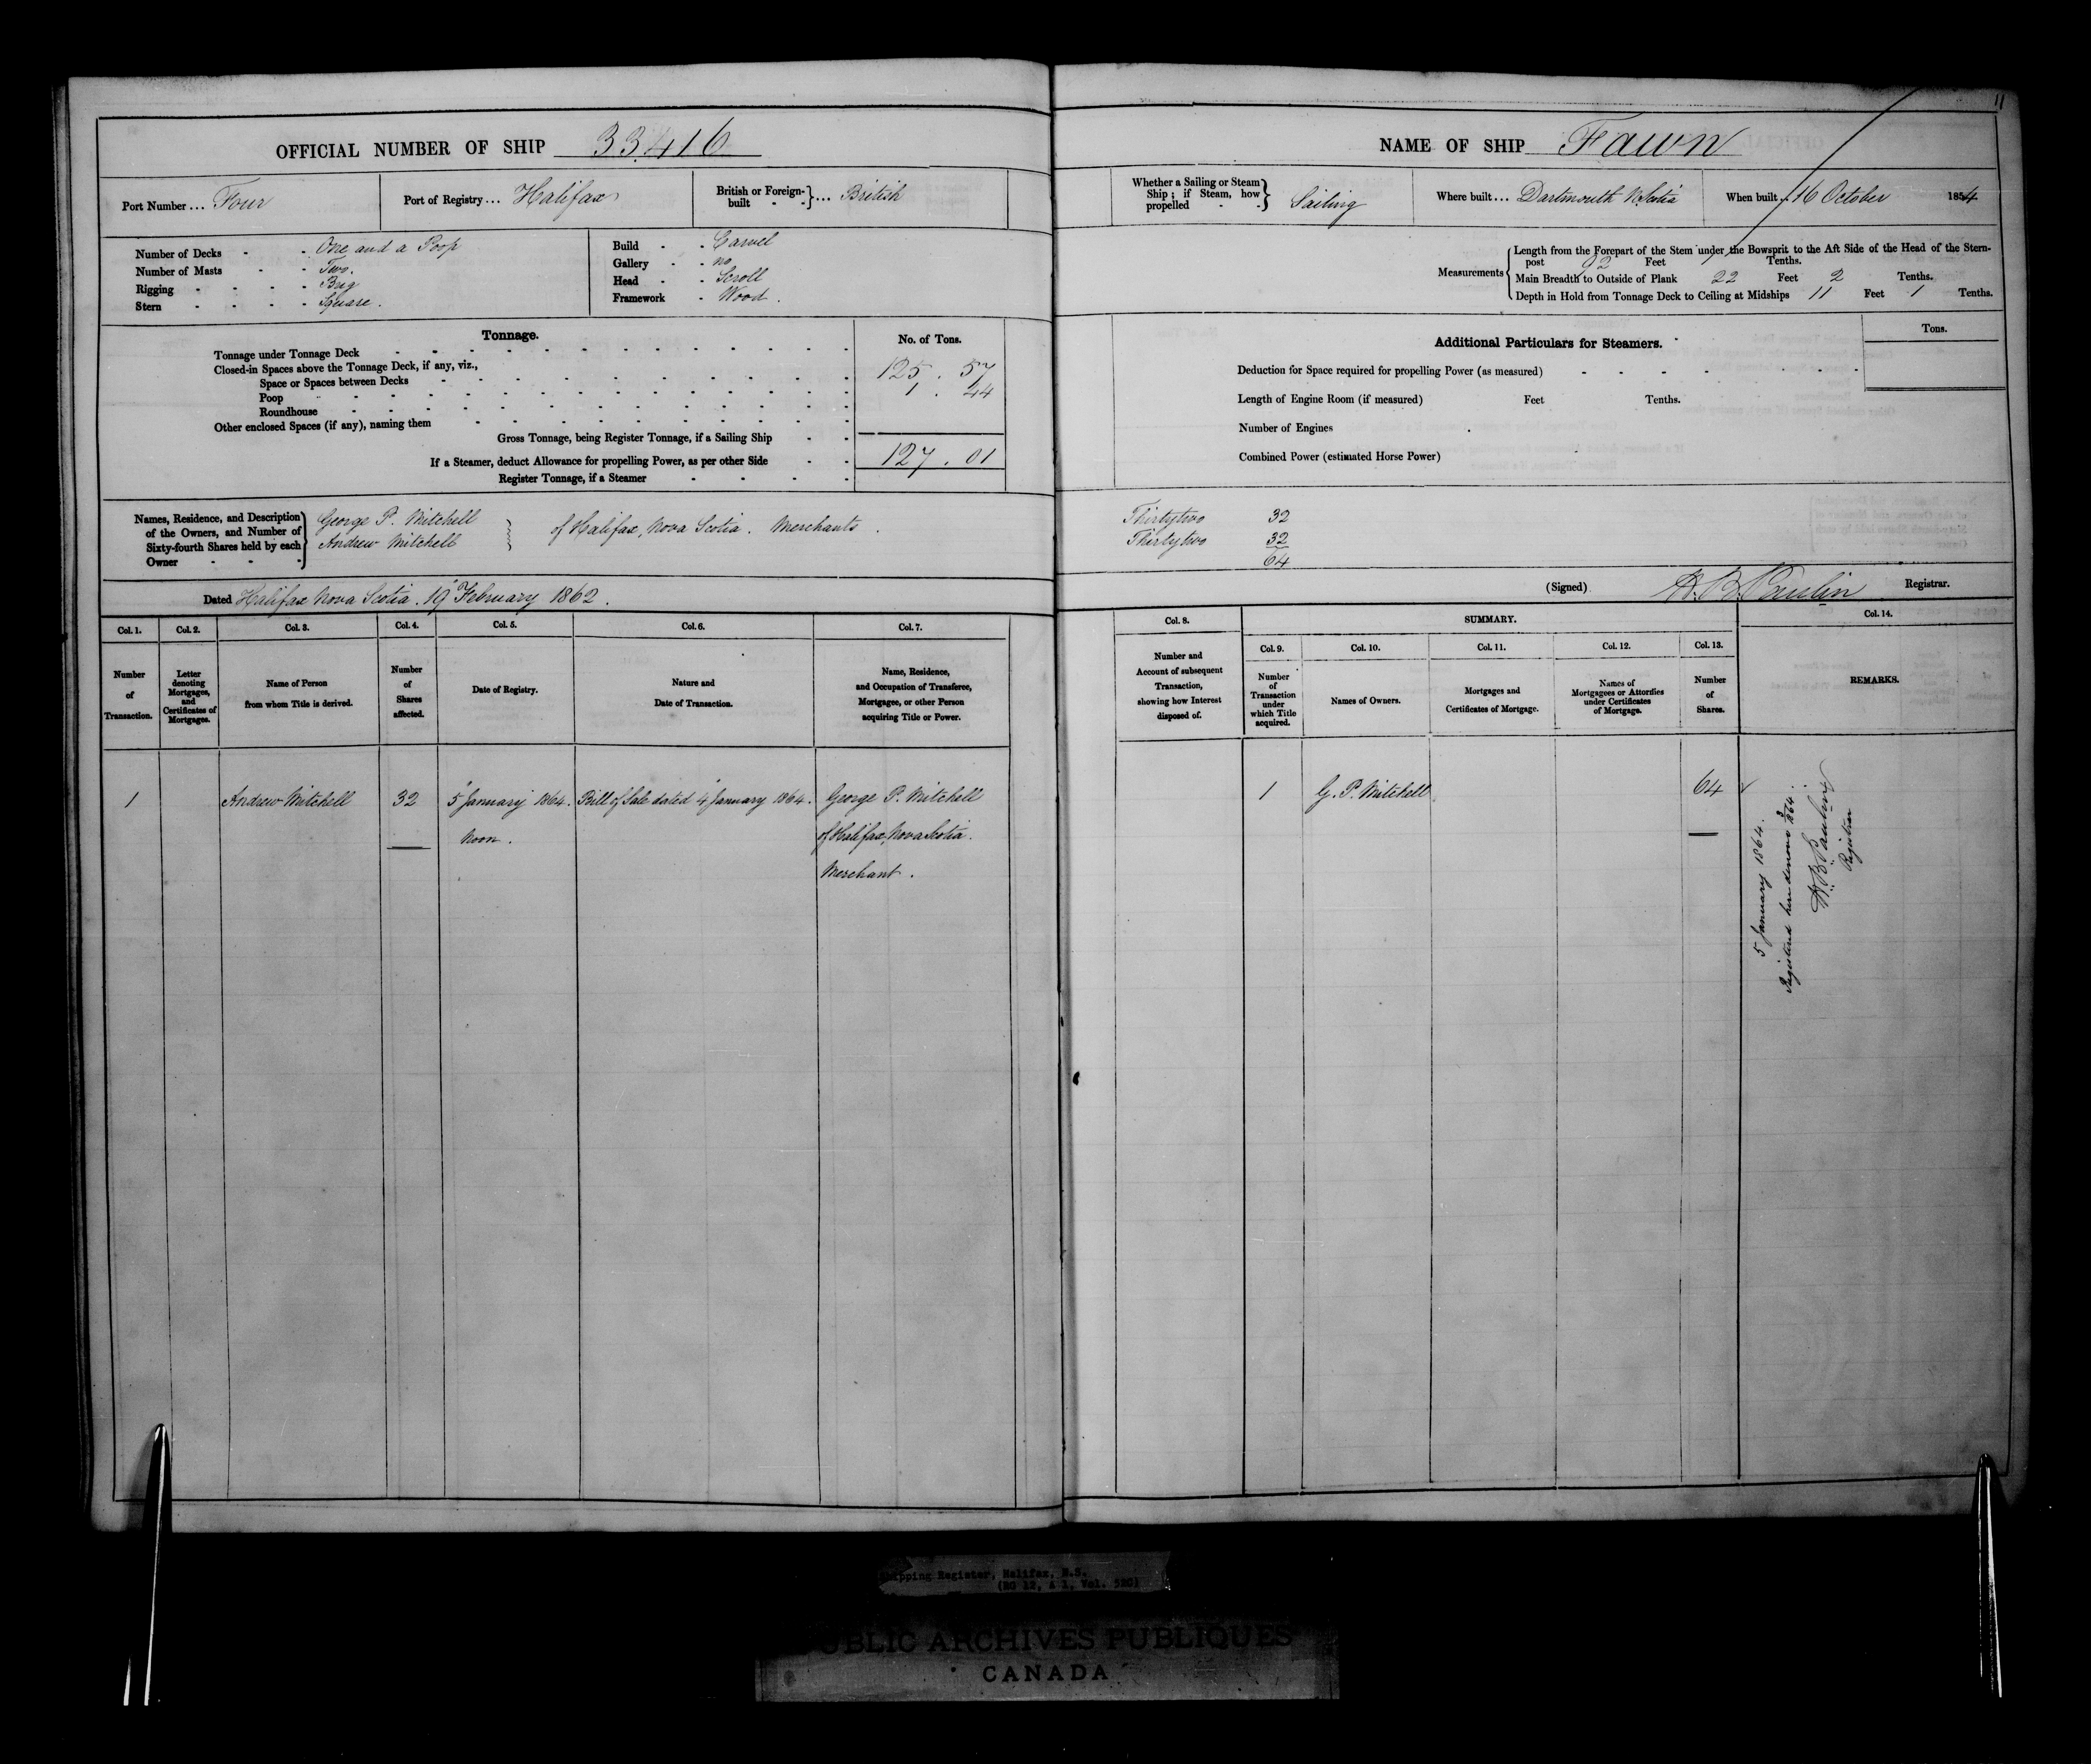 11
OFFICIAL NUMBER OF SHIP 33.416
Port Number... Four
Port of Registry... Halifax
British or Foreign-built - - }... British
Number of Decks - - One and a Poop
Number of Masts - - Two.
Rigging - - - - Brig
Stern - - - - Square.
Build - - Carvel
Gallery - - no
Head - - Scroll
Framework - Wood.
Tonnage.
No. of Tons.
Tonnage under Tonnage Deck 125. 57
Closed-in Spaces above the Tonnage Deck, if any, viz.,
Space or Spaces between Decks
Poop 1. 44
Roundhouse
Other enclosed Spaces (if any), naming them
Gross Tonnage, being Register Tonnage, if a Sailing Ship
127. 01
If a Steamer, deduct Allowance for propelling Power, as per other Side
Register Tonnage, if a Steamer
Names, Residence, and Description of the Owners, and Number of Sixty-fourth Shares held by each Owner
George P. Mitchell
Andrew Mitchell
of Halifax, Nova Scotia. Merchants.
Dated Halifax Nova Scotia. 19" February 1862.
Col. 1. Col. 2. Col. 3. Col. 4. Col. 5. Col. 6. Col. 7.
Number of Transaction.
Letter denoting Mortgages, and Certificates of Mortgages.
Name of Person from whom Title is derived.
Number of Shares affected.
Date of Registry.
Nature and Date of Transaction.
Name, Residence, and Occupation of Transferee, Mortgagee, or other Person acquiring Title or Power.
1 Andrew Mitchell 32 5" January 1864. Bill of Sale dated 4" January 1864. George P. Mitchell
Noon. of Halifax, Nova Scotia.
Merchant.
NAME OF SHIP Fawn
Whether a Sailing or Steam Ship; if Steam, how propelled - - } Sailing
Where built... Dartmouth N. Scotia
When built... 16 October 1854
Measurements
Length from the Forepart of the Stem under the Bowsprit to the Aft Side of the Head of the Stern-
post 92 Feet 1 Tenths.
Main Breadth to Outside of Plank 22 Feet 2 Tenths.
Depth in Hold from Tonnage Deck to Ceiling at Midships 11 Feet 1 Tenths.
Additional Particulars for Steamers.
Tons.
Deduction for Space required for propelling Power (as measured)
Length of Engine Room (if measured) Feet Tenths.
Number of Engines
Combined Power (estimated Horse Power)
Thirtytwo 32
Thirtytwo 32
64
(Signed) H. B. Paulin Registrar.
Col. 8.
SUMMARY.
Col. 14.
Col. 9. Col. 10. Col. 11. Col. 12. Col. 13.
Number and Account of subsequent Transaction, showing how Interest disposed of.
Number of Transaction under which Title acquired.
Names of Owners.
Mortgages and Certificates of Mortgage.
Names of Mortgagees or Attornies under Certificates of Mortgage.
Number of Shares.
REMARKS.
1 G. P. Mitchell 64
5 January 1864.
Registered here
H. B. Paulin
Registrar
Shipping Register, Halifax, N.S.
(RG 12, A 1, Vol. 520)
PUBLIC ARCHIVES PUBLIQUES
CANADA